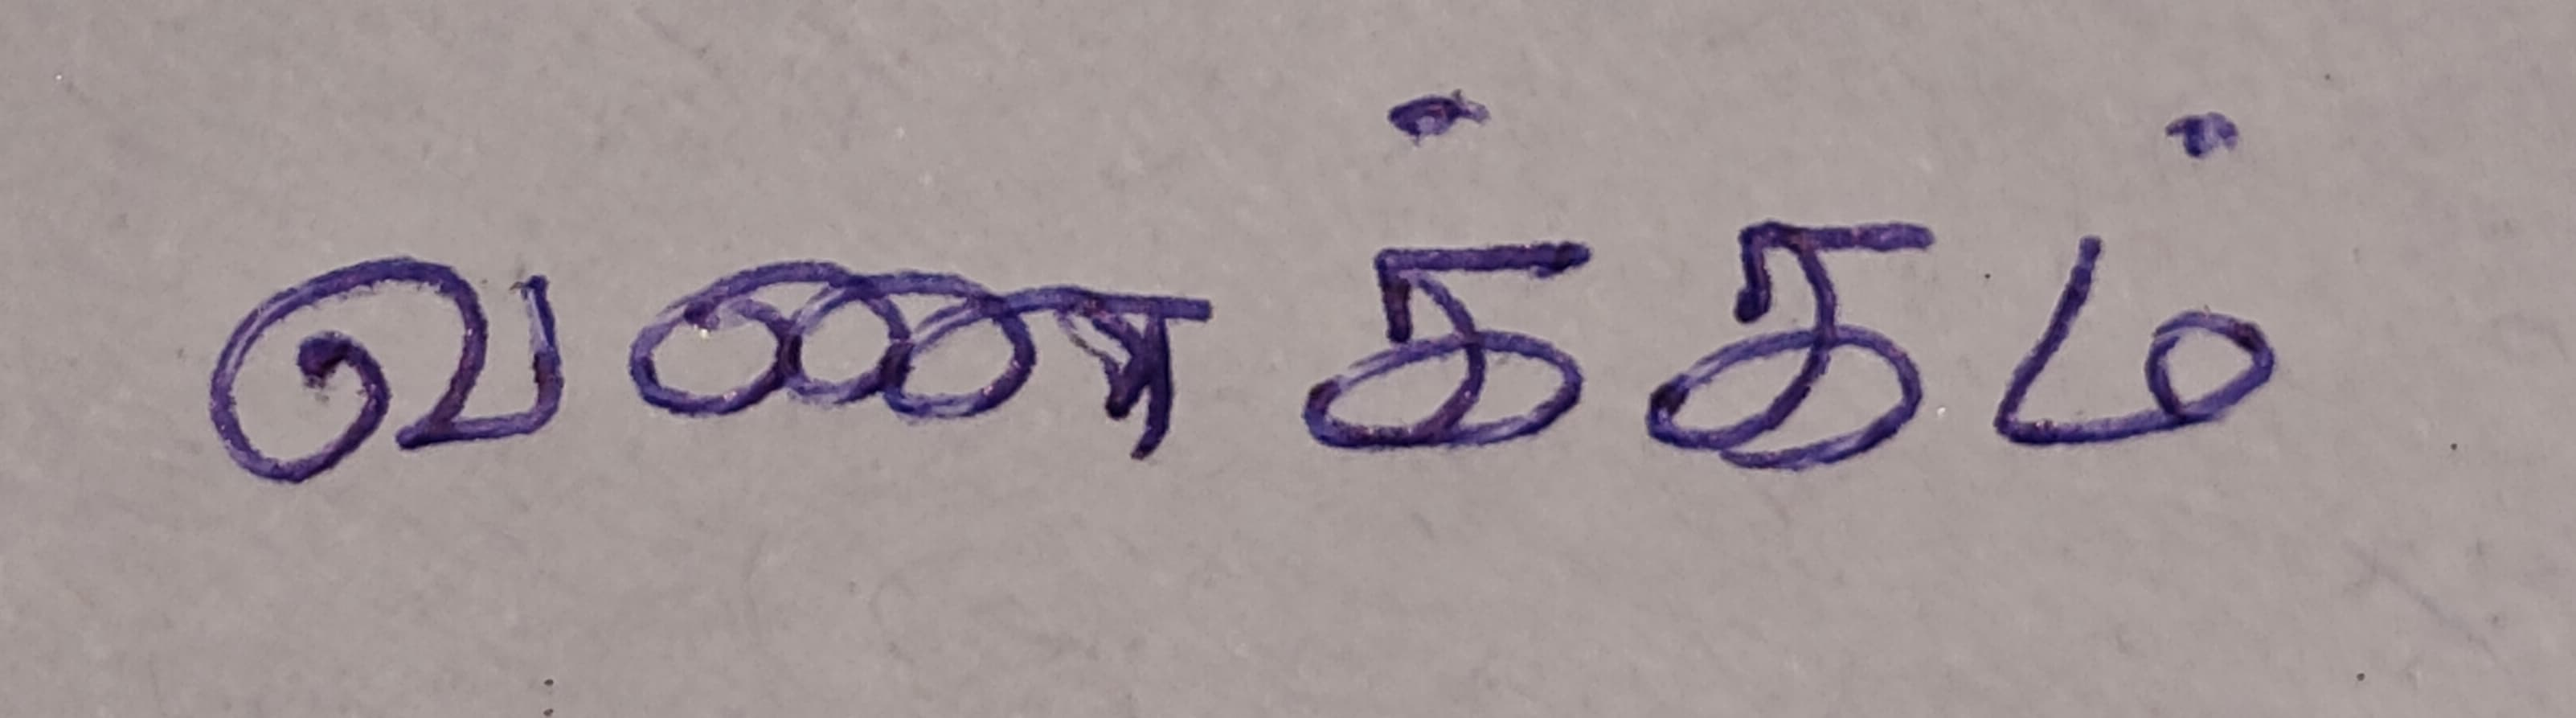 வணக்கம்